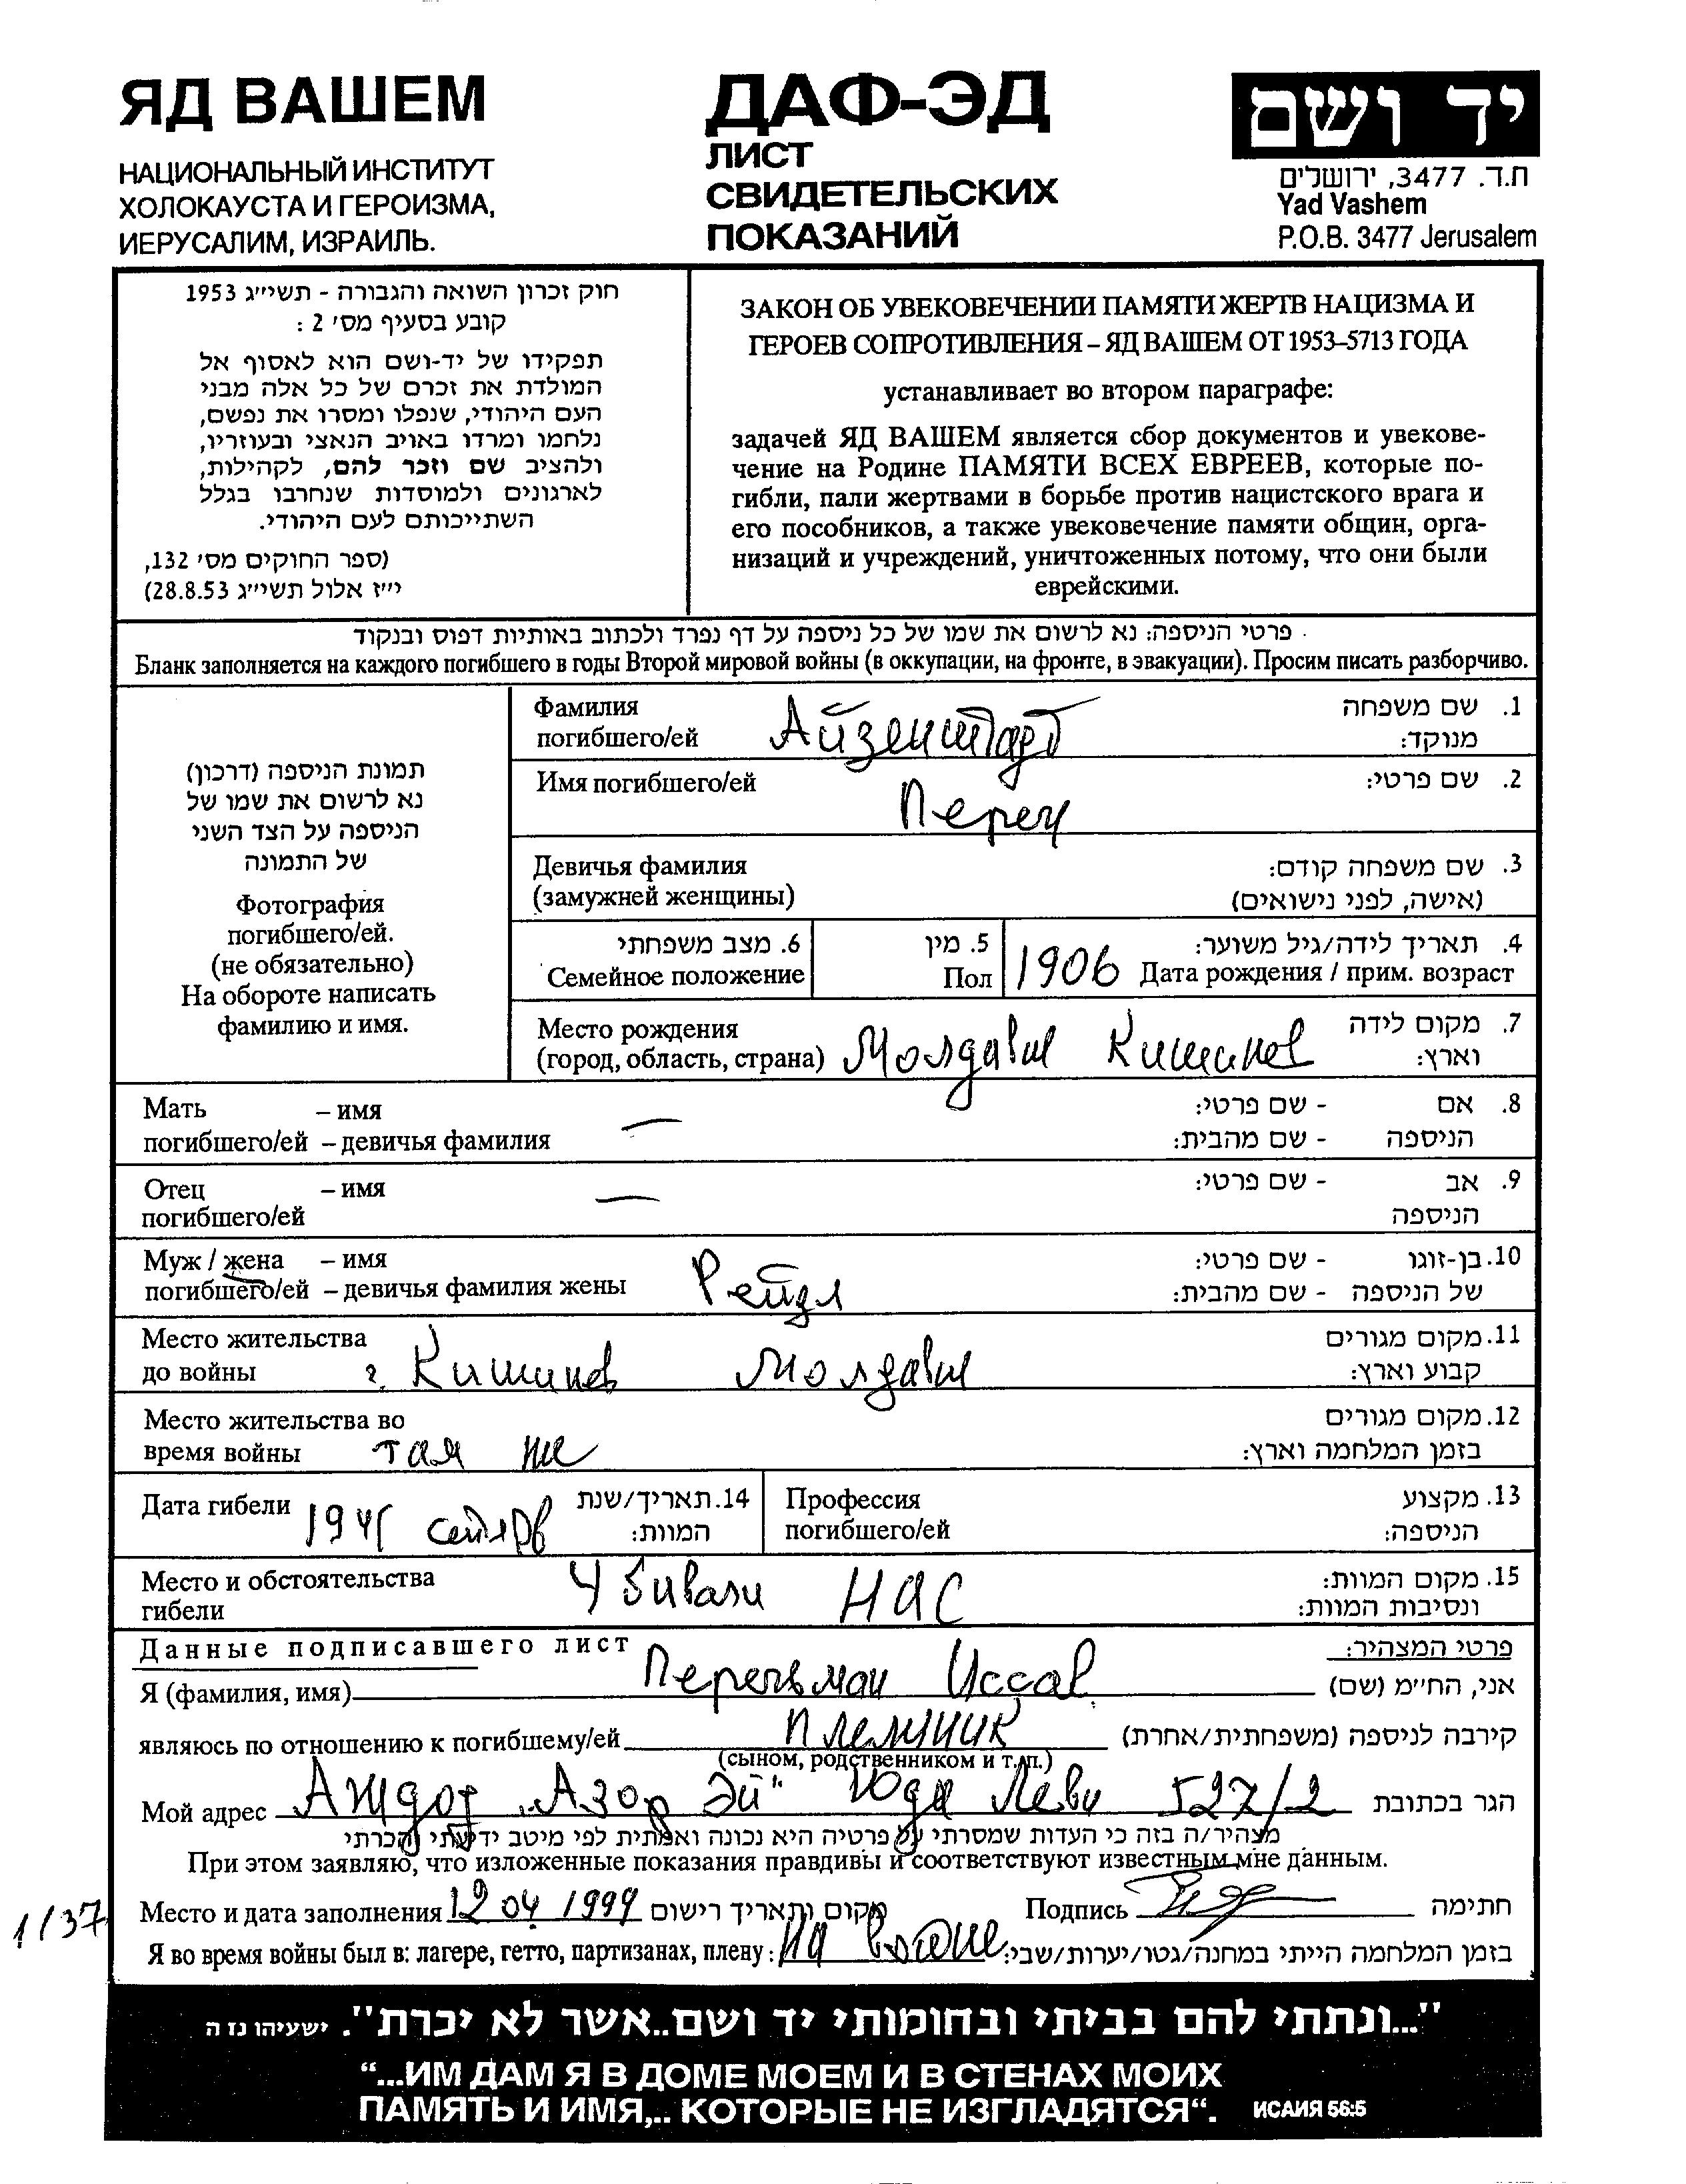 ЯД ВАШЕМ
НАЦИОНАЛЬНЫЙ ИНСТИТУТ
ХОЛОКАУСТА И ГЕРОИЗМА,
ИЕРУСАЛИМ, ИЗРАИЛЬ.
ДАФ-ЭД
ЛИСТ
СВИДЕТЕЛЬСКИХ
ПОКАЗАНИЙ
יד ושם
ת.ד. 3477, ירושלים
Yad Vashem
P.O.B. 3477 Jerusalem
חוק זכרון השואה והגבורה - תשי״ג 1953
קובע בסעיף מס׳ 2 :
תפקידו של יד-ושם הוא לאסוף אל
המולדת את זכרם של כל אלה מבני
העם היהודי, שנפלו ומסרו את נפשם,
נלחמו ומרדו באויב הנאצי ובעוזריו,
ולהציב שם וזכר להם, לקהילות,
לארגונים ולמוסדות שנחרבו בגלל
השתייכותם לעם היהודי.
(ספר החוקים מס׳ 132,
י״ז אלול תשי״ג 28.8.53)
ЗАКОН ОБ УВЕКОВЕЧЕНИИ ПАМЯТИ ЖЕРТВ НАЦИЗМА И
ГЕРОЕВ СОПРОТИВЛЕНИЯ – ЯД ВАШЕМ ОТ 1953–5713 ГОДА
устанавливает во втором параграфе:
задачей ЯД ВАШЕМ является сбор документов и увекове-
чение на Родине ПАМЯТИ ВСЕХ ЕВРЕЕВ, которые по-
гибли, пали жертвами в борьбе против нацистского врага и
его пособников, а также увековечение памяти общин, орга-
низаций и учреждений, уничтоженных потому, что они были
еврейскими.
פרטי הניספה: נא לרשום את שמו של כל ניספה על דף נפרד ולכתוב באותיות דפוס ובנקוד.
Бланк заполняется на каждого погибшего в годы Второй мировой войны (в оккупации, на фронте, в эвакуации). Просим писать разборчиво.
תמונת הניספה (דרכון)
נא לרשום את שמו של
הניספה על הצד השני
של התמונה
Фотография
погибшего/ей.
(не обязательно)
На обороте написать
фамилию и имя.
Фамилия 1. שם משפחה
погибшего/ей Айзенштадт מנוקד:
Имя погибшего/ей Перец 2. שם פרטי:
Девичья фамилия 3. שם משפחה קודם:
(замужней женщины) (אישה, לפני נישואים)
6. מצב משפחתי 5. מין 4. תאריך לידה/גיל משוער:
Семейное положение Пол 1906 Дата рождения / прим. возраст
Место рождения 7. מקום לידה
(город, область, страна) Молдавия Кишинев וארץ:
Мать – имя 8. אם - שם פרטי:
погибшего/ей – девичья фамилия — הניספה - שם מהבית:
Отец – имя — 9. אב - שם פרטי:
погибшего/ей הניספה
Муж / жена – имя 10. בן-זוגו - שם פרטי:
погибшего/ей – девичья фамилия жены Рейзл של הניספה - שם מהבית:
Место жительства 11. מקום מגורים
до войны г. Кишинев Молдавия קבוע וארץ:
Место жительства во 12. מקום מגורים
время войны там же בזמן המלחמה וארץ:
Дата гибели 1941 14. תאריך/שנת המוות:
Профессия 13. מקצוע
погибшего/ей הניספה:
Место и обстоятельства Убивали НАС 15. מקום המוות:
гибели ונסיבות המוות:
Данные подписавшего лист פרטי המצהיר:
Я (фамилия, имя) אני, הח״מ (שם)
являюсь по отношению к погибшему/ей племник קירבה לניספה (משפחתית/אחרת)
(сыном, родственником и т.п.)
Мой адрес Аждод „Азор Эй" Юда Леви 527/2 הגר בכתובת
מצהיר/ה בזה כי העדות שמסרתי על פרטיה היא נכונה ואמתית לפי מיטב ידיעתי והכרתי
При этом заявляю, что изложенные показания правдивы и соответствуют известным мне данным.
Место и дата заполнения 12 04 1999 מקום ותאריך רישום Подпись חתימה
1/37
Я во время войны был в: лагере, гетто, партизанах, плену: На בזמן המלחמה הייתי במחנה/גטו/יערות/שבי:
"...ונתתי להם בביתי ובחומותי יד ושם..אשר לא יכרת". ישעיהו נז ה
“...ИМ ДАМ Я В ДОМЕ МОЕМ И В СТЕНАХ МОИХ
ПАМЯТЬ И ИМЯ,.. КОТОРЫЕ НЕ ИЗГЛАДЯТСЯ“. ИСАИЯ 56:5